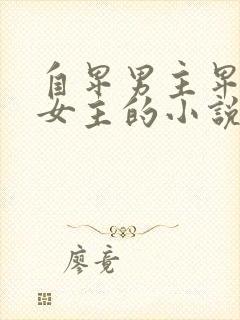 自卑男主卑
女主的小說
廖竟